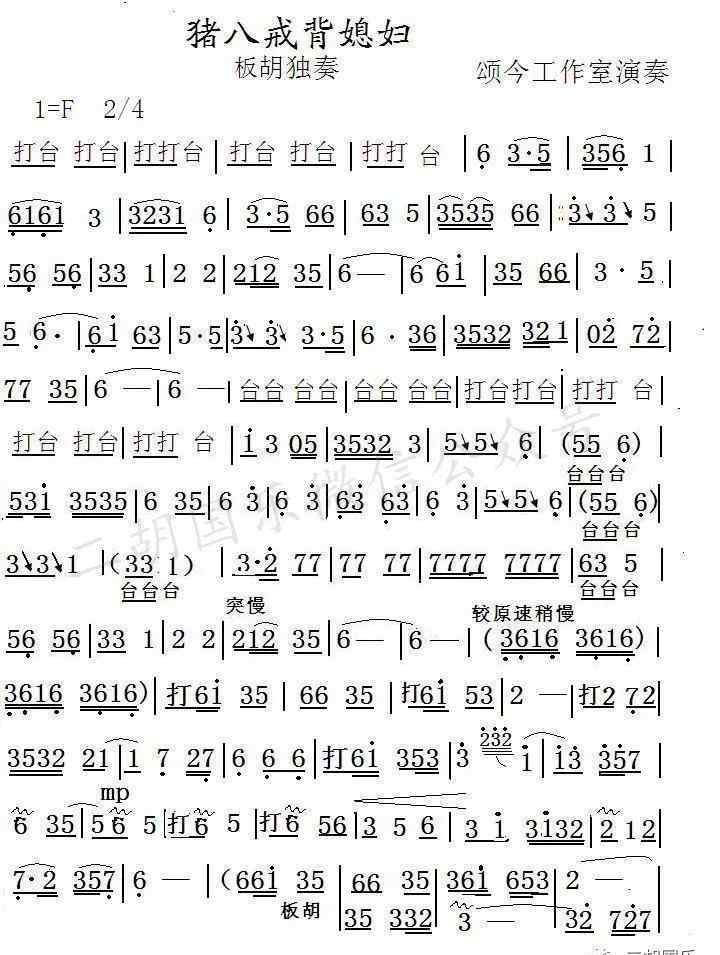 猪八戒背媳妇
板胡独奏 颂今工作室演奏
1=F 2/4
打台 打台|打打台|打台 打台|打打 台|6 3·5|356 1|
6161 3|3231 6|3·5 66|63 5|3535 66|3 3 5|
56 56|33 1|2 2|212 35|6—|6 61|35 66|3·5|
5 6·|61 63|5·5|3 3|3·5|6·36|3532 321|02 72|
77 35|6 —|6 —|台台台台|台台 台台|打台打台|打打 台|
打台 打台|打打 台|1 3 05|3532 3|5 5 6|(55 6)|
台台台
531 3535|6 35|6 3|6 3|63 63|6 3|5 5 6|(55 6)|
台台台
3 3 1|(33 1)|3·2 77|77 77|7777 7777|63 5|
台台台 台台台
突慢 较原速稍慢
56 56|33 1|2 2|212 35|6—|6—|(3616 3616)|
3616 3616)|打61 35|66 35|打61 53|2 —|打2 72|
3532 21|1 7 27|6 6 6|打61 353|3 232 1|13 357|
mp
6 35|56 5|打6 5|打6 56|3 5 6|3 1 3132|2 12|
7·2 357|6 —|(661 35|66 35|361 653|2 —|
板胡 35 332|3 —|32 727|
二胡国乐微信公众号